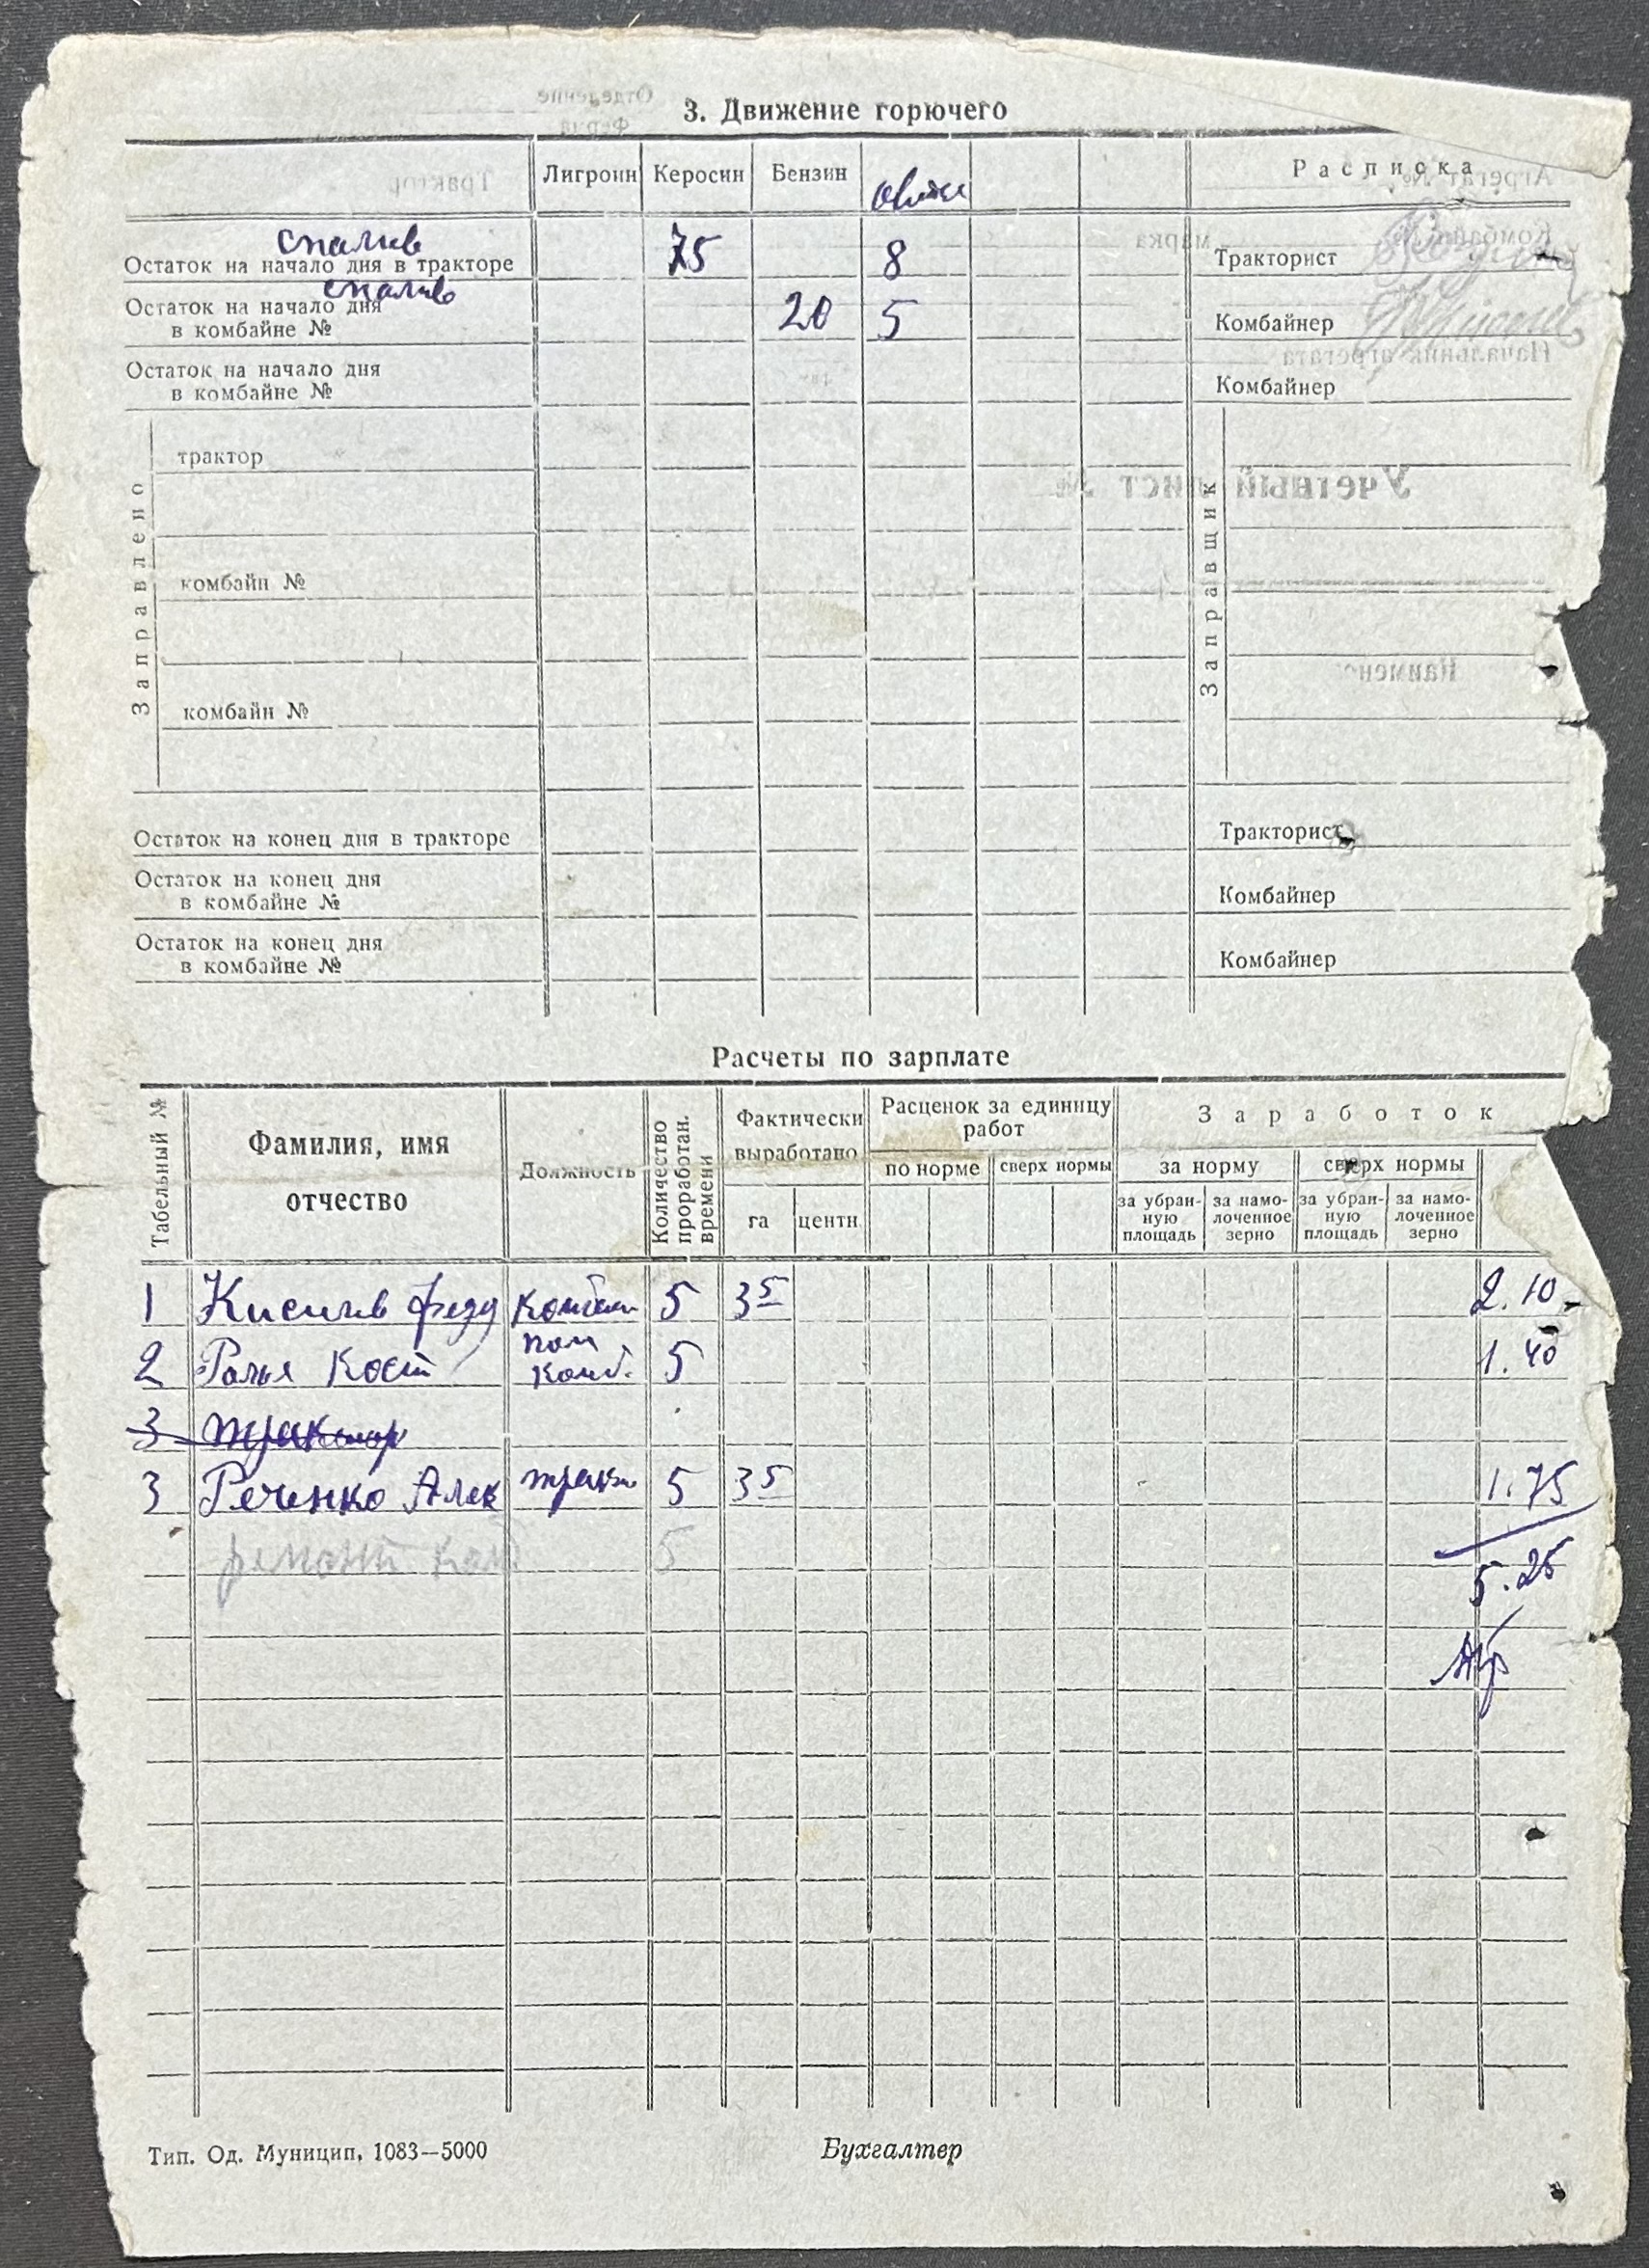 3. Движение горючего
Лигроин Керосин Бензин Расписка
спалив
Остаток на начало дня в тракторе 75 8 Тракторист
спалив
Остаток на начало дня
в комбайне № 20 5 Комбайнер
Остаток на начало дня
в комбайне № Комбайнер
Заправлено
трактор
комбайн №
комбайн №
Заправщик
Остаток на конец дня в тракторе Тракторист
Остаток на конец дня
в комбайне № Комбайнер
Остаток на конец дня
в комбайне № Комбайнер
Расчеты по зарплате
Табельный №
Фамилия, имя
отчество
Должность
Количество
проработан.
времени
Фактически
выработано
га центн.
Расценок за единицу
работ
по норме сверх нормы
Заработок
за норму сверх нормы
за убран-
ную
площадь
за намо-
лоченное
зерно
за убран-
ную
площадь
за намо-
лоченное
зерно
1 5 3 5 2.10
2 Кост пом
комб. 5 1.40
3 трактор
3 Реченко Алек 5 3 5 1.75
ремонт 5
5.25
Тип. Од. Муницип. 1083—5000 Бухгалтер
Отделение
Ферма
Трактор
Агрегат №
Комбайн №
марка
Начальник агрегата
Учетный лист №